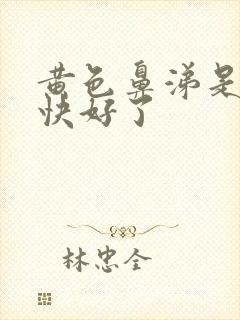 黄色鼻涕是
快好了
林忠全